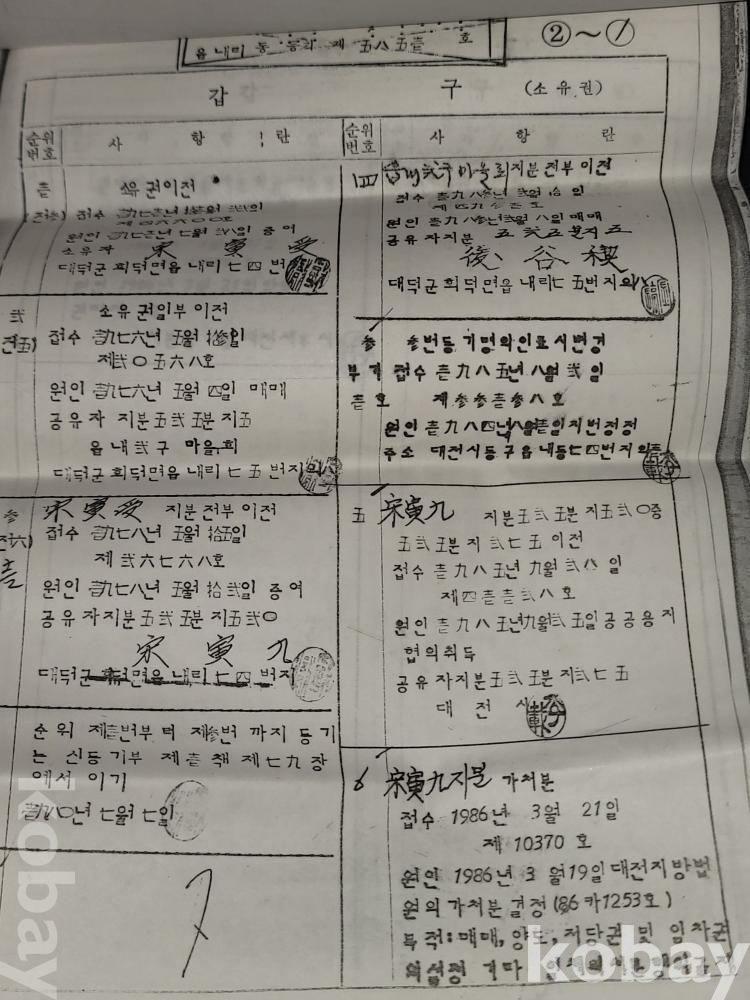 읍내리 동 등기 제 五八五壹 호
②~①
갑 구 (소유권)
순위번호 사 항 란
壹
소유권이전
소유자 宋寅受
대덕군 회덕면 읍내리 七四번
弐
소유권일부이전
접수 壹九七六년 五월
제弐〇五六八호
원인 壹九七六년 五월 四일 매매
공유자 지분 五弐五분지五
읍내弐구 마을회
대덕군 회덕면 읍내리 七五번지의八
参
宋寅受 지분전부이전
접수 壹九七八년 五월 拾五일
제弐六七六八호
원인 壹九七八년 五월 拾弐일 증여
공유자지분 五弐五분지五弐〇
宋寅九
대덕군 회덕면 읍내리 七四번지
순위 제壹번부터 제参번 까지 등기
는 신등기부 제壹책 제七九장
에서 이기
壹九八〇년 七월 七일
순위번호 사 항 란
四
마을회지분전부이전
공유자지분 五弐五분지五
後谷稧
대덕군 회덕면 읍내리 七五번지의八
参 参번등기명의인표시변경
부기 접수 壹九八五년 八월 弐일
壹호 제参参壹参八호
주소 대전시 동구 읍내동 七四번지의
五
宋寅九 지분五弐五분지五弐〇중
五弐五분지弐七五이전
접수 壹九八五년 九월 弐八일
제四壹壹弐八호
원인 壹九八五년九월弐五일공공용지
협의취득
공유자지분五弐五분지弐七五
대전시
6 宋寅九지분 가처분
접수 1986년 3월 21일
제 10370 호
원인 1986년 3월19일 대전지방법
원의 가처분결정(86카1253호)
목적: 매매, 양도, 저당권 및 임차권
의설정 기타 일체의
kobay
kobay